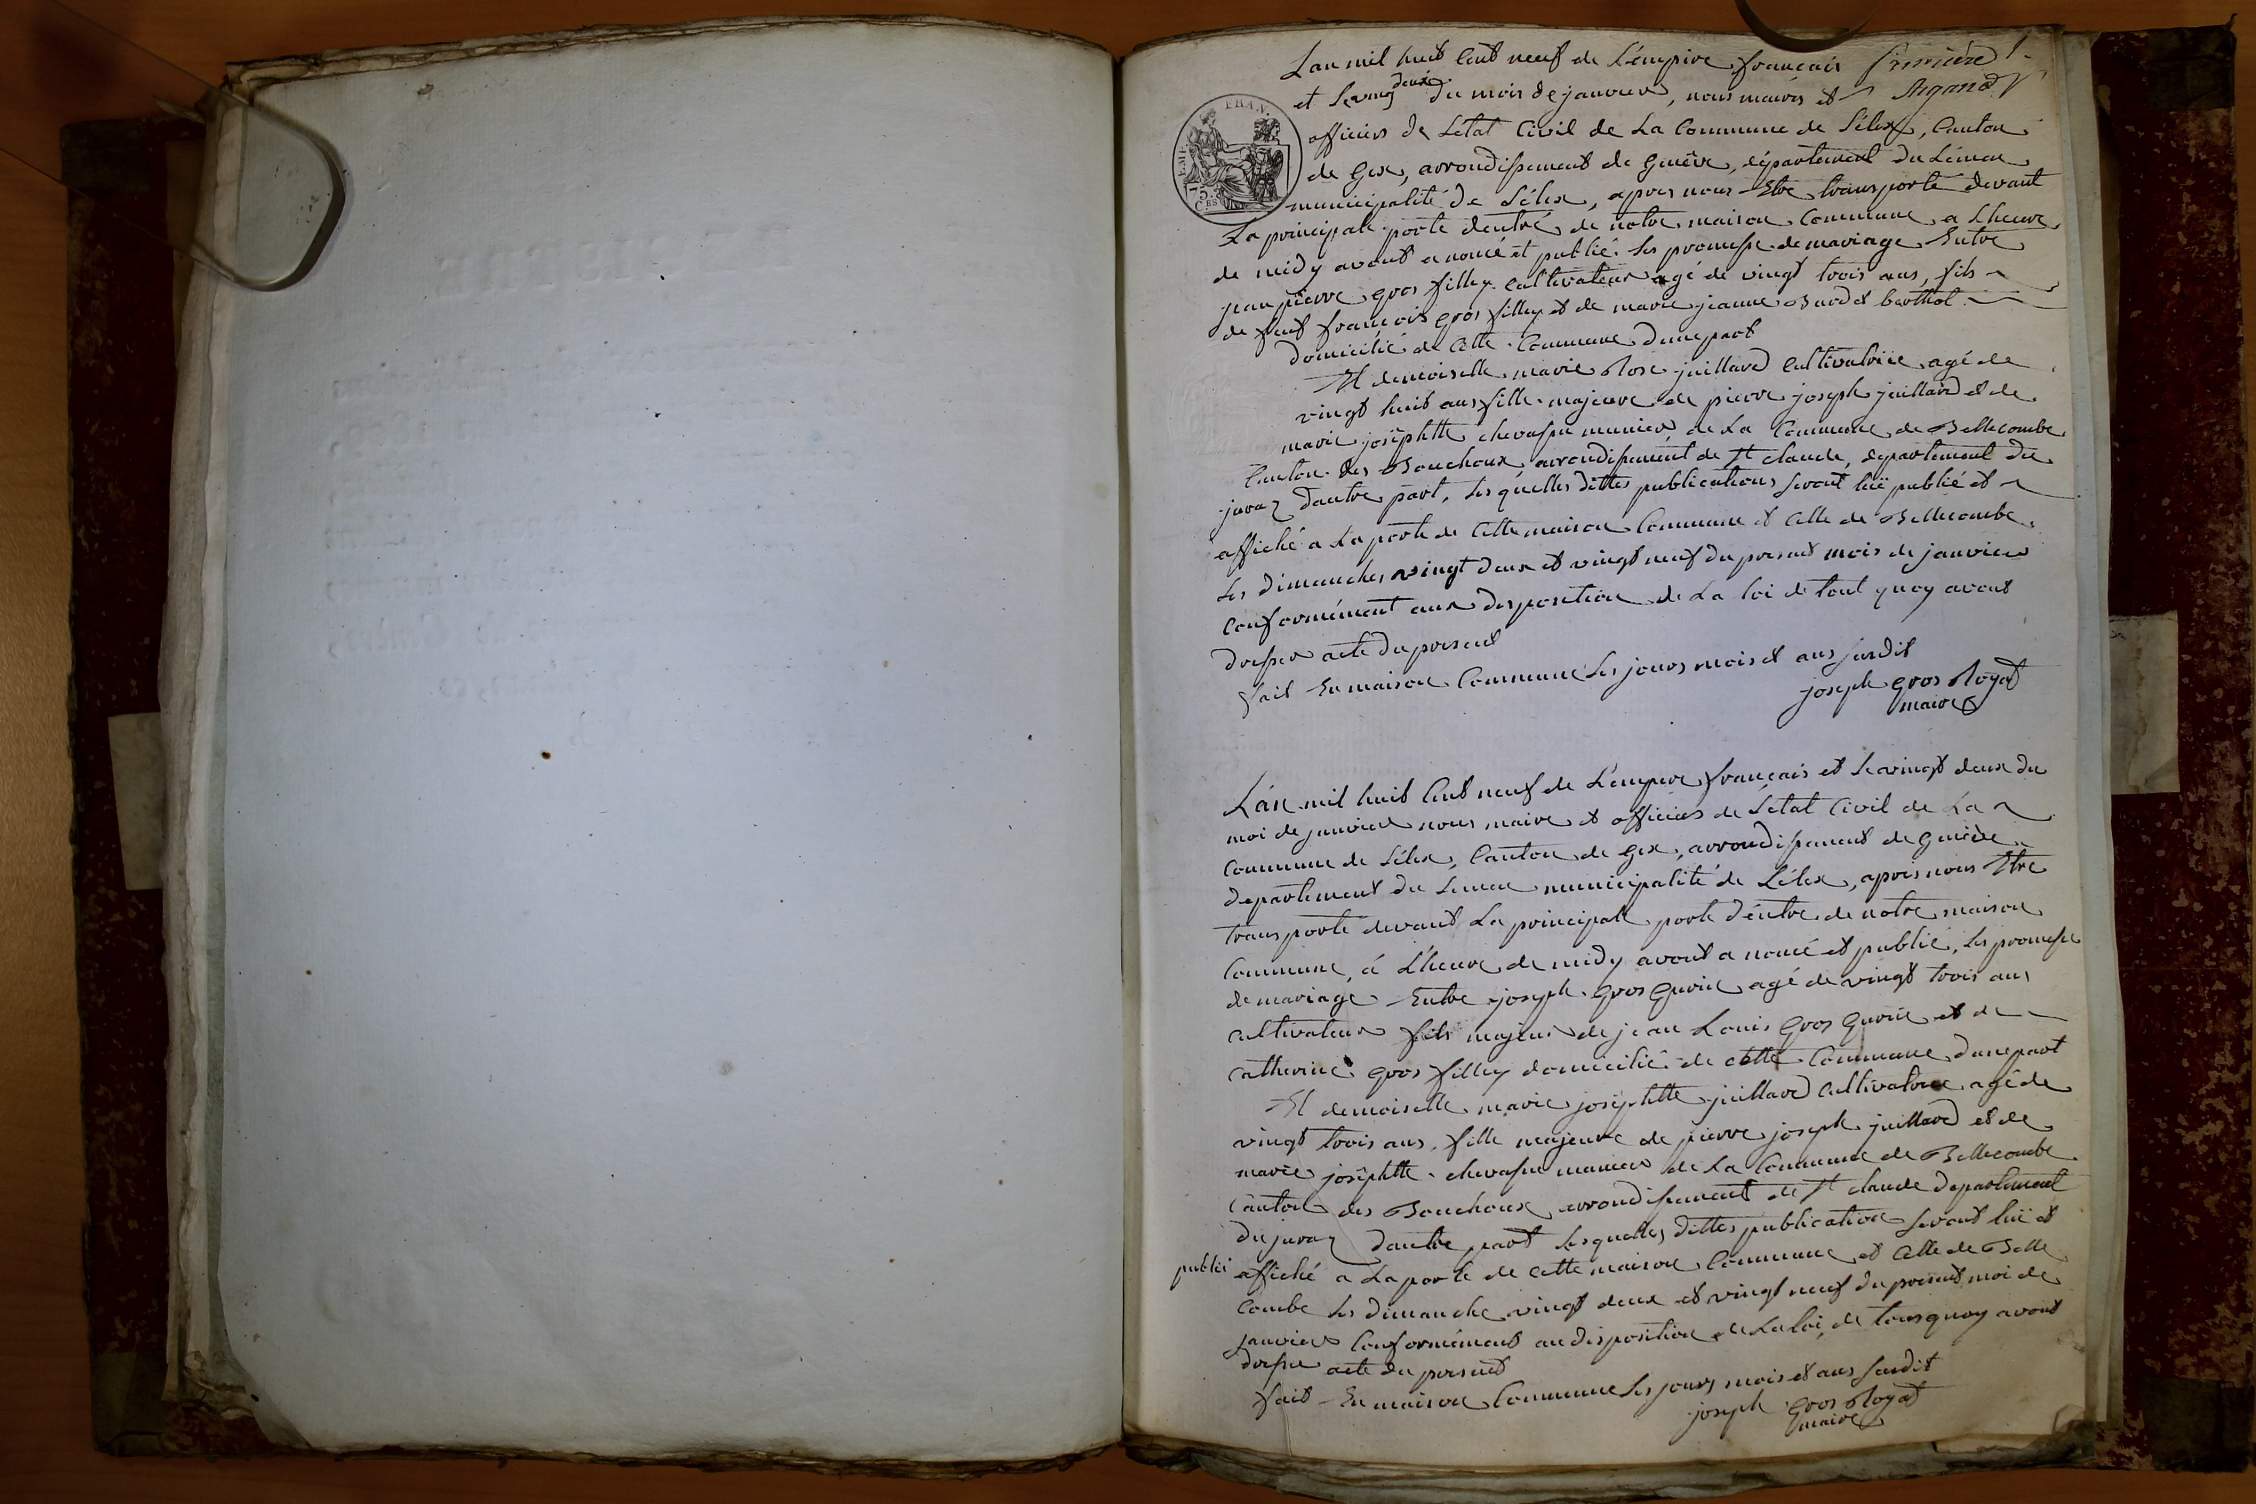 Lan mil huit Cent neuf de L'empire francais Premiere
et le ving deux du mois de janvier, nous maires et
officiers de Létat Civil de La Commune de Lélex, Canton
de Gex, arrondissement de Genève, département du Léman
municipalité de Lélex, apres nous Etre transporté devant
La principale porte dentré de notre maison Commune a Lheure
de midy avont anoncé et publié les promesse de mariage Entre
jean pierre gros fillex cultivateur agé de vingt trois ans, fils
de feut françois gros fillex et de marie jeanne Burdet berthol
domicilié de Cette Commune dune part
Et demoiselle marie Rose juillard Cultivatrice agé de
vingt huit ans fille majeure de pierre joseph juillard et de
marie josephtte chevassu munier, de La Commune de Bellecombe
Canton des Bouchoux, arrondissement de St claude, département du
jura dautre part, les quelles dittes publications seront luë publié et
affiché a La porte de Cette maison Commune et Celle de Bellecombe
les dimanches vingt deux et vingt neuf du present mois de janvier
Conformément aux disposition de La loi de tout quoy avont
dresser acte du present
fait En maison Commune les jours mois et ans susdit
joseph gros Royat
maire
L'an mil huit Cent neuf de L'empire français et le vingt deux du
moi de janvier nous maire et officiers de Létat Civil de La
Commune de Lélex, Canton de Gex, arrondissement de Genève
departement du Leman municipalité de Lélex, apres nous Etre
transporté devant La principale porte d'éntre de notre maison
Commune, á L'heure de midy avont anoncé et publié, les promesse
de mariage Entre joseph Gros Gurin agé de vingt trois ans
cultivateur fils majeur de jean Louis Gros Gurin et de
catherine gros fillex domicilié de cette Commune dune part
Et demoiselle marie joséphtte juillard Cultivatrice agé de
vingt trois ans, fille majeure de pierre joseph juillard et de
marie joséphtte chevassu munier de La Commune de Bellecombe
Canton des Bouchoux arrondissement de St claude departement
du jura dautre part lesquelles dittes publication seront luë et
publié affiché a La porte de cette maison Commune et Celle de Belle
Combe les dimanche vingt deux et vingt neuf du présent moi de
janvier Conformément au disposition de La loi, de tous quoy avont
dresse acte du present
fait En maison Commune les jours mois et ans susdit
joseph Gros Royat
maire